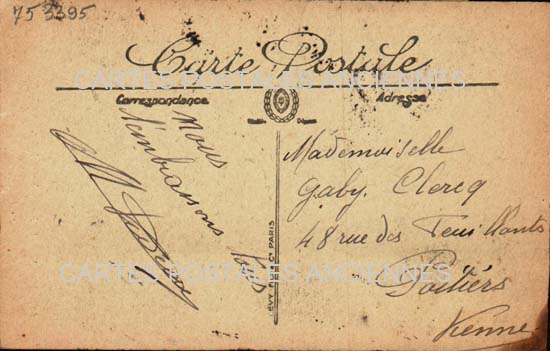 75 3395
Carte Postale
CARTES POSTALES ANCIENNES
Correspondance
Adresse
nous
t'embrassons
tous
Mademoiselle
Gaby Clercq
48 rue des Feuillants
Poitiers
Vienne
CARTES POSTALES ANCIENNES
PARIS